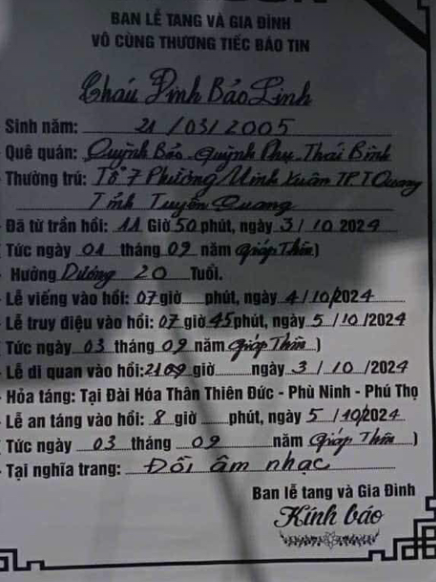 BAN LỄ TANG VÀ GIA ĐÌNH
VÔ CÙNG THƯƠNG TIẾC BÁO TIN
Cháu Đinh Bảo Linh
Sinh năm: 21/03/2005
Quê quán: Quỳnh Bảo - Quỳnh Phụ - Thái Bình
Thường trú: Tổ 7 Phường Minh Xuân TP T Quang
Tỉnh Tuyên Quang
- Đã từ trần hồi: 11 Giờ 50 phút, ngày 3/10 2024
(Tức ngày 01 tháng 09 năm Giáp Thìn)
- Hưởng Dương 20 Tuổi.
- Lễ viếng vào hồi: 07 giờ phút, ngày 4/10/2024
- Lễ truy điệu vào hồi: 07 giờ 45 phút, ngày 5/10/2024
(Tức ngày 03 tháng 09 năm Giáp Thìn)
- Lễ di quan vào hồi: giờ phút, ngày 3/10/2024
- Hỏa táng: Tại Đài Hóa Thân Thiên Đức - Phù Ninh - Phú Thọ
- Lễ an táng vào hồi: 8 giờ phút, ngày 5/10/2024
(Tức ngày 03 tháng 09 năm Giáp Thìn)
- Tại nghĩa trang: Đồi âm nhạc
Ban lễ tang và Gia Đình
Kính báo